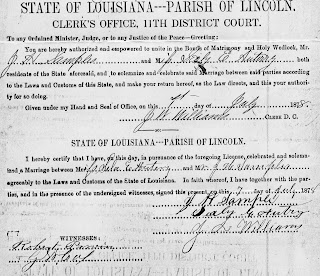 STATE OF LOUISIANA---PARISH OF LINCOLN.
CLERK'S OFFICE, 11TH DISTRICT COURT.
To any Ordained Minister, Judge, or to any Justice of the Peace—Greeting:
You are hereby authorized and empowered to unite in the Bonds of Matrimony and Holy Wedlock, Mr.
J. H. Samples and M Autrey both
residents of the State aforesaid, and to solemnize and celebrate said Marriage between said parties according
to the Laws and Customs of this State, and make your return hereof, as the Laws direct, and this your authority
for so doing.
Given under my Hand and Seal of Office, on this day of July 1878
J. D. Williams CLERK D. C.
STATE OF LOUISIANA—PARISH OF LINCOLN.
I hereby certify that I have, on this day, in pursuance of the foregoing License, celebrated and solemn-
ized a Marriage between M and Mr. J. H. Samples
agreeably to the Laws and Customs of the State of Louisiana. In faith whereof, I have together with the par-
ties, and in the presence of the undersigned witnesses, signed this present on this 7 day of July 1878
J H Sample
Autry
J. D. Williams
WITNESSES: